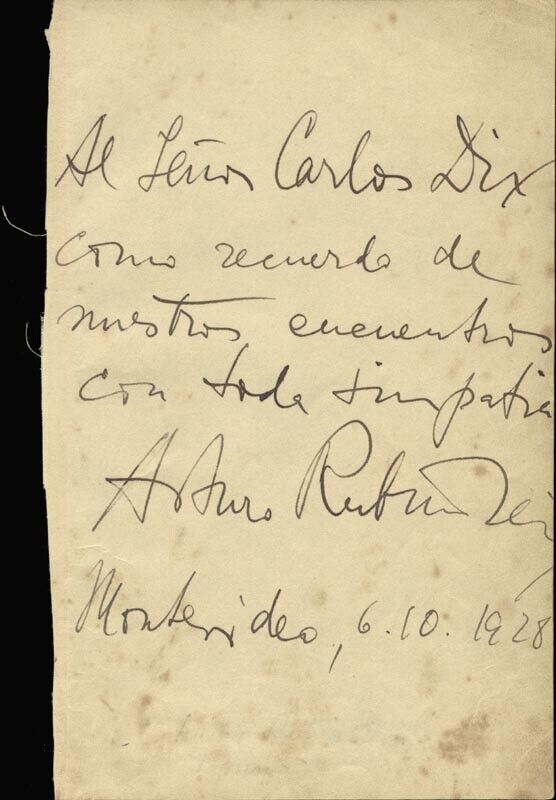 Al Señor Carlos Dix
como recuerdo de
nuestros encuentros
con toda simpatia
Arturo Rubinstein
Montevideo, 6.10.1928